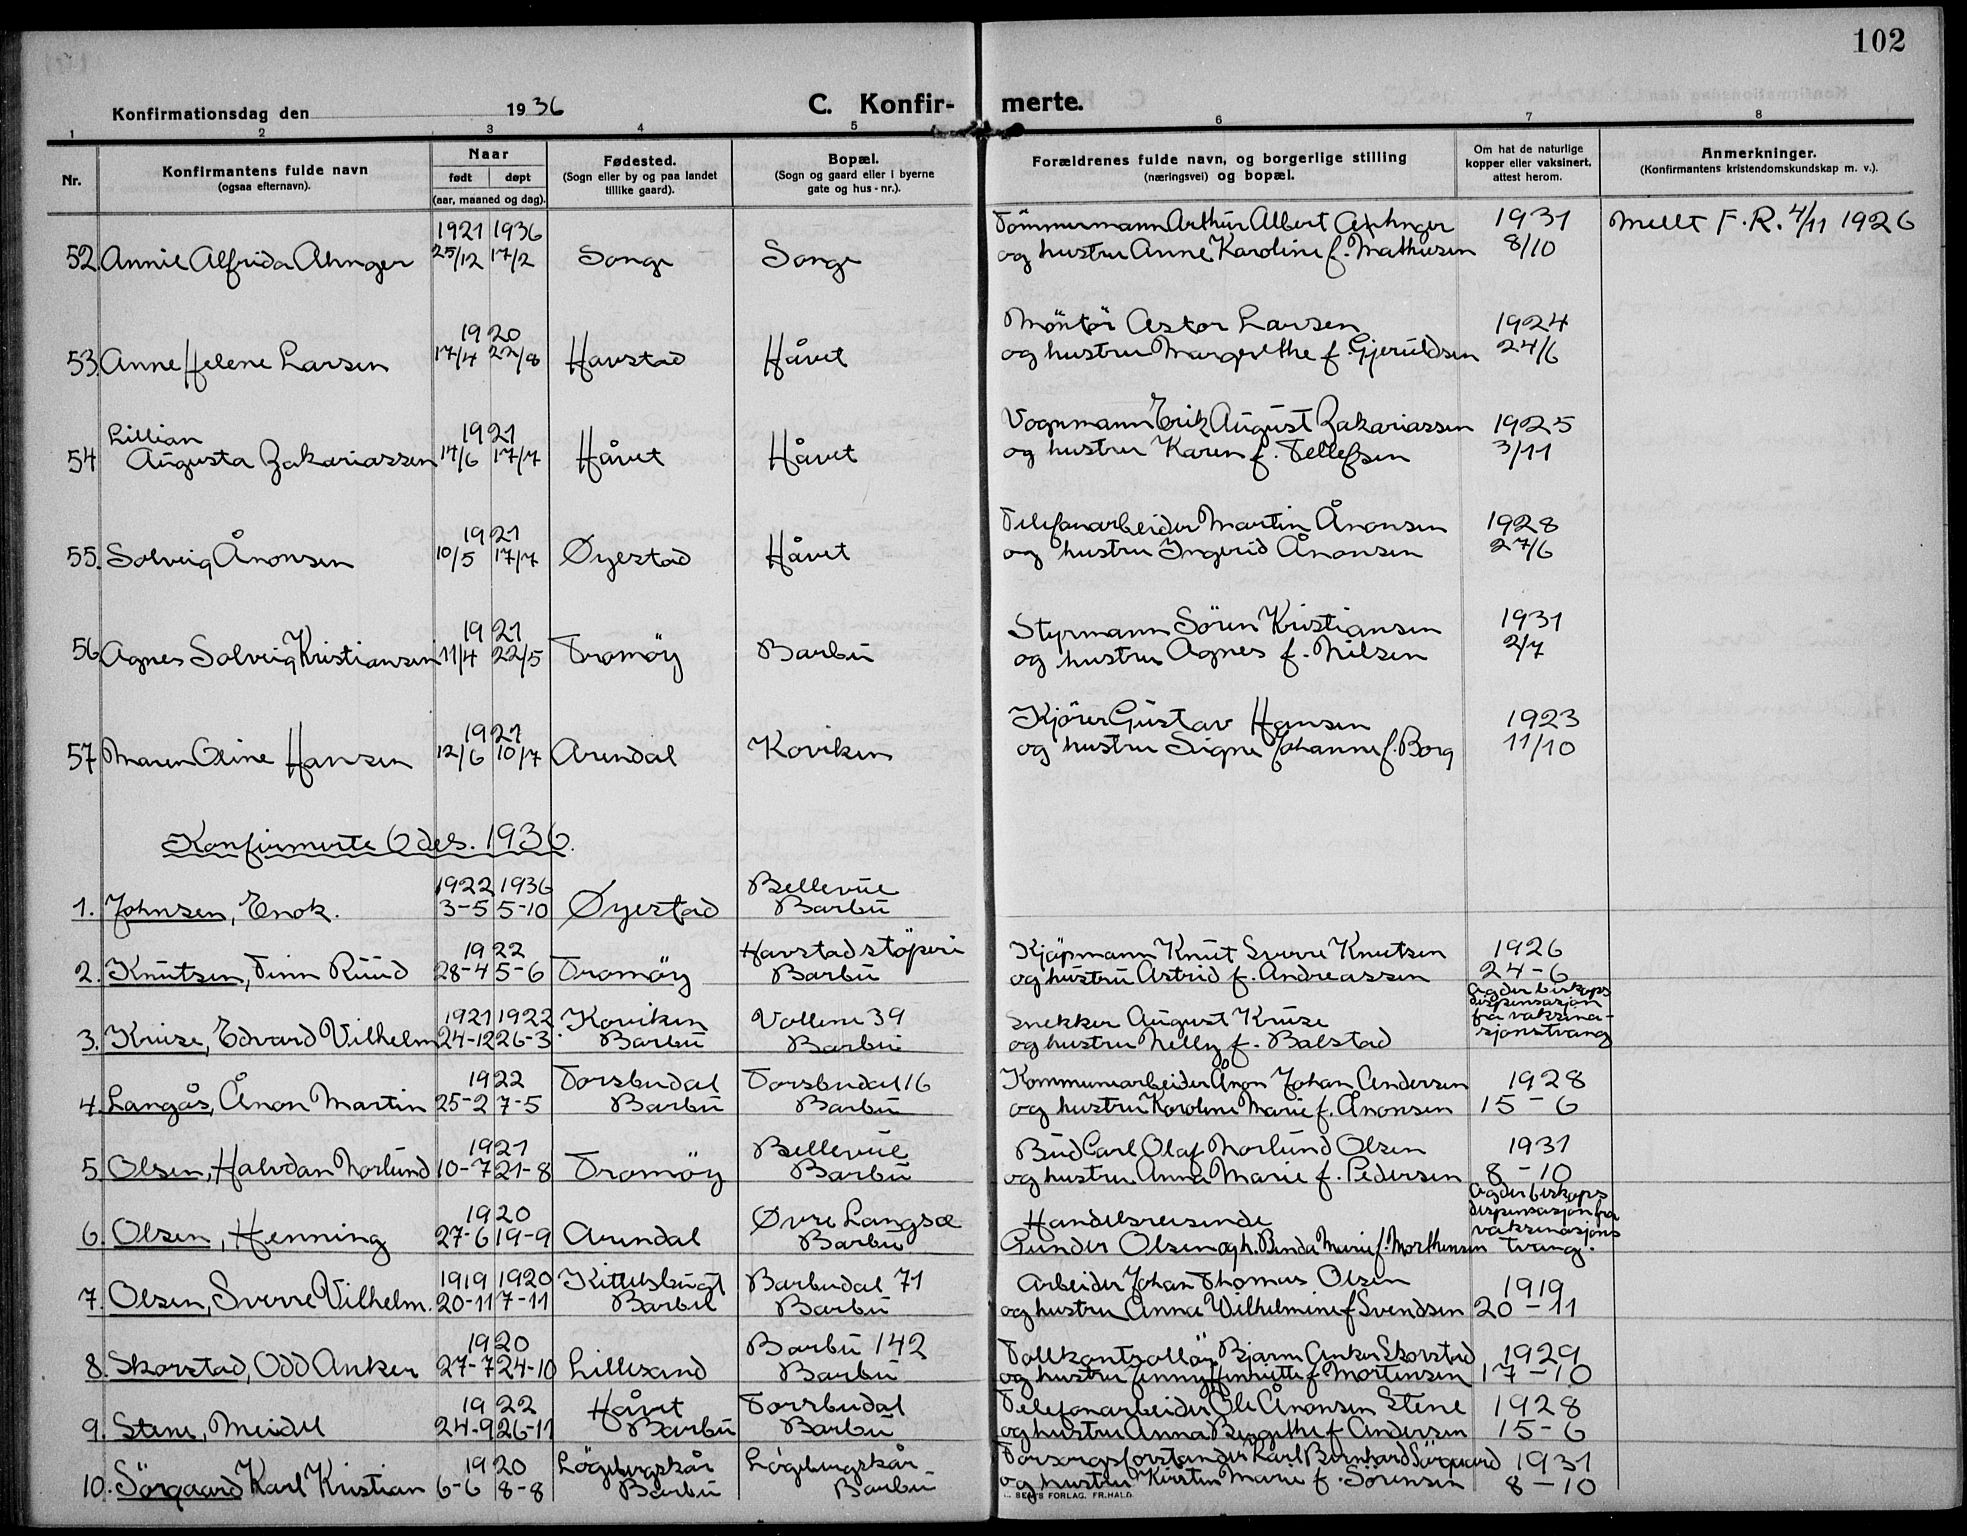 102
Konfirmationsdag den 1936 C. Konfir- merte.
1 2 3 4 5 6 7 8
Nr.
Konfirmantens fulde navn
(ogsaa efternavn).
Naar
født døpt
(aar, maaned og dag).
Fødested.
(Sogn eller by og paa landet
tillike gaard).
Bopæl.
(Sogn og gaard eller i byerne
gate og hus-nr.).
Forældrenes fulde navn, og borgerlige stilling
(næringsvei) og bopæl.
Om hat de naturlige
kopper eller vaksinert,
attest herom.
Anmerkninger.
(Konfirmantens kristendomskundskap m. v.).
1921 1936 Tömmermann Arthur Albert Ahnger 1931 Meldt F.R. 4/11 1926
52 Annie Alfrida Ahnger 25/12 17/2 Songe Songe og hustru Anne Karoline f. Mathiesen 8/10
1920 Möntör Astor Larsen 1924
53. Anne Helene Larsen 17/4 22/8 Havstad Håvet og hustru Margrethe f. Gjeruldsen 24/6
Lillian 1921 Vognmann Erik August Zakariassen 1925
54 Augusta Zakariassen 14/6 17/7 Håvet Håvet og hustru Karen f. Tellefsen 3/11
1921 Telefonarbeider Martin Ånonsen 1928
55. Solveig Ånonsen 10/5 17/7 Øyestad Håvet og hustru Ingerid Ånonsen 27/6
1921 Styrmann Sören Kristiansen 1931
56 Agnes Solveig Kristiansen 11/4 22/5 Tromöy Barbu og hustru Agnes f. Nilsen 2/7
1921 Kjörer Gustav Hansen 1923
57 Maren Oline Hansen 12/6 10/7 Arendal Koviken og hustru Signe Johanne f. Borg 11/10
Konfirmerte 6 des. 1936.
1922 1936 Bellevue
1. Johnsen, Enok. 3-5 5-10 Øyestad Barbu
1922 Havstad stöperi Kjöpmann Knut Sverre Knutsen 1926
2. Knutsen, Finn Ruud 28-4 5-6 Tromöy Barbu og hustru Astrid f. Andreassen 24-6
1921 1922 Koviken Vollene 39 Snekker August Kruse Agder biskops dispensasjon
3. Kruse, Edvard Vilhelm 24-12 26-3 Barbu Barbu og hustru Nelly f. Balstad fra vaksina-sjonstvang
1922 Torsbudal Torsbudal 16 Kommunearbeider Ånon Johan Andersen 1928
4. Langås, Ånon Martin 25-2 7-5 Barbu Barbu og hustru Karoline Marie f. Ånonsen 15-6
1921 Bellevue Bud Carl Olaf Norlund Olsen 1931
5. Olsen, Halvdan Norlund 10-7 21-8 Tromöy Barbu og hustru Anna Marie f. Pedersen 8-10
1920 Øvre Langsæ Handelsreisende Agder biskops dispensasjon fra
6. Olsen, Henning 27-6 19-9 Arendal Barbu Gunder Olsen og h. Benda Marie f. Morthensen vaksinasjons tvang.
1919 1920 Kittelsbugt Barbudal 71 Arbeider Johan Thomas Olsen 1919
7. Olsen, Sverre Vilhelm. 20-11 7-11 Barbu Barbu og hustru Anna Wilhelmine f Svendsen 20-11
1920 Barbu 142 Tollkontrollör Bjarne Anker Skorstad 1929
8. Skorstad, Odd Anker 27-7 24-10 Lillesand Barbu og hustru Jenny Henriette f Mortensen 17-10
1922 Håvet Torsbudal Telefonarbeider Ole Ånonsen Stene 1928
9. Stene, Meidel 24-9 26-11 Barbu Barbu og hustru Anna Bergithe f Andersen 15-6
1920 Lögebergskår Lögebergskår Forsorgsforstander Karl Bernhard Sörgaard 1931
10. Sörgaard Karl Kristian 6-6 8-8 Barbu Barbu og hustru Kirsten Marie f. Sörensen 8-10
SEM'S FORLAG. FR.HALD.